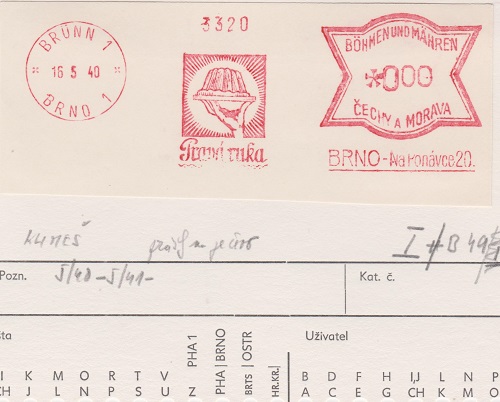 3320
BRÜNN 1
16 5 40
BRNO 1
BÖHMEN UND MÄHREN
000
ČECHY A MORAVA
Pravá ruka
BRNO - Na Ponávce 20.
KLIMEŠ
I B 49
Pozn. 5/40 - 5/41 -
Kat. č.
Uživatel
PHA 1
PHA BRNO
BRTS OSTR
HR.KR.
I K M O R T V
CH J L N P S U Z
B D F H I,J L N P
A C E G CH K M O